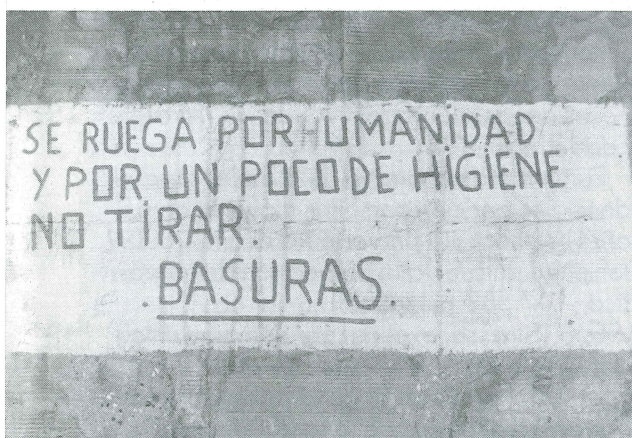 SE RUEGA POR HUMANIDAD
Y POR UN POCO DE HIGIENE
NO TIRAR.
.BASURAS.